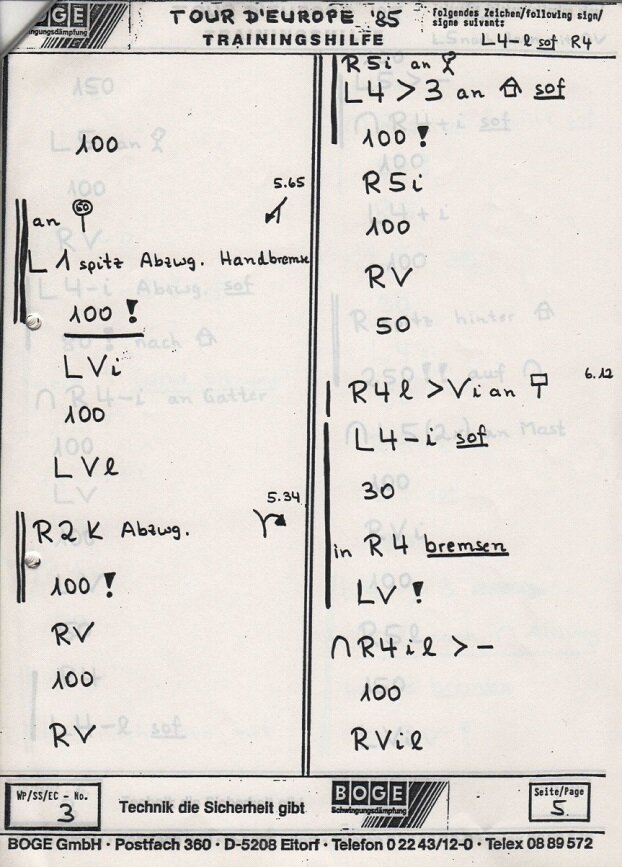 BOGE
Schwingungsdämpfung
TOUR D'EUROPE '85
TRAININGSHILFE
Folgendes Zeichen/following sign/
signe suivant:
L4-l sof R4
100
5.65
60
an
L 1 spitz Abzwg. Handbremse
100 !
LVi
100
LVl
5.34
R2K Abzwg.
100 !
RV
100
RV
R5i an
L4 > 3 an sof
100 !
R5i
100
RV
50
6.12
R4l > Vi an
L4-i sof
30
in R4 bremsen
LV !
∩R4il > -
100
RVil
WP/SS/EC - No.
3
Technik die Sicherheit gibt
BOGE
Schwingungsdämpfung
Seite/Page
5
BOGE GmbH · Postfach 360 · D-5208 Eitorf · Telefon 0 22 43/12-0 · Telex 08 89 572